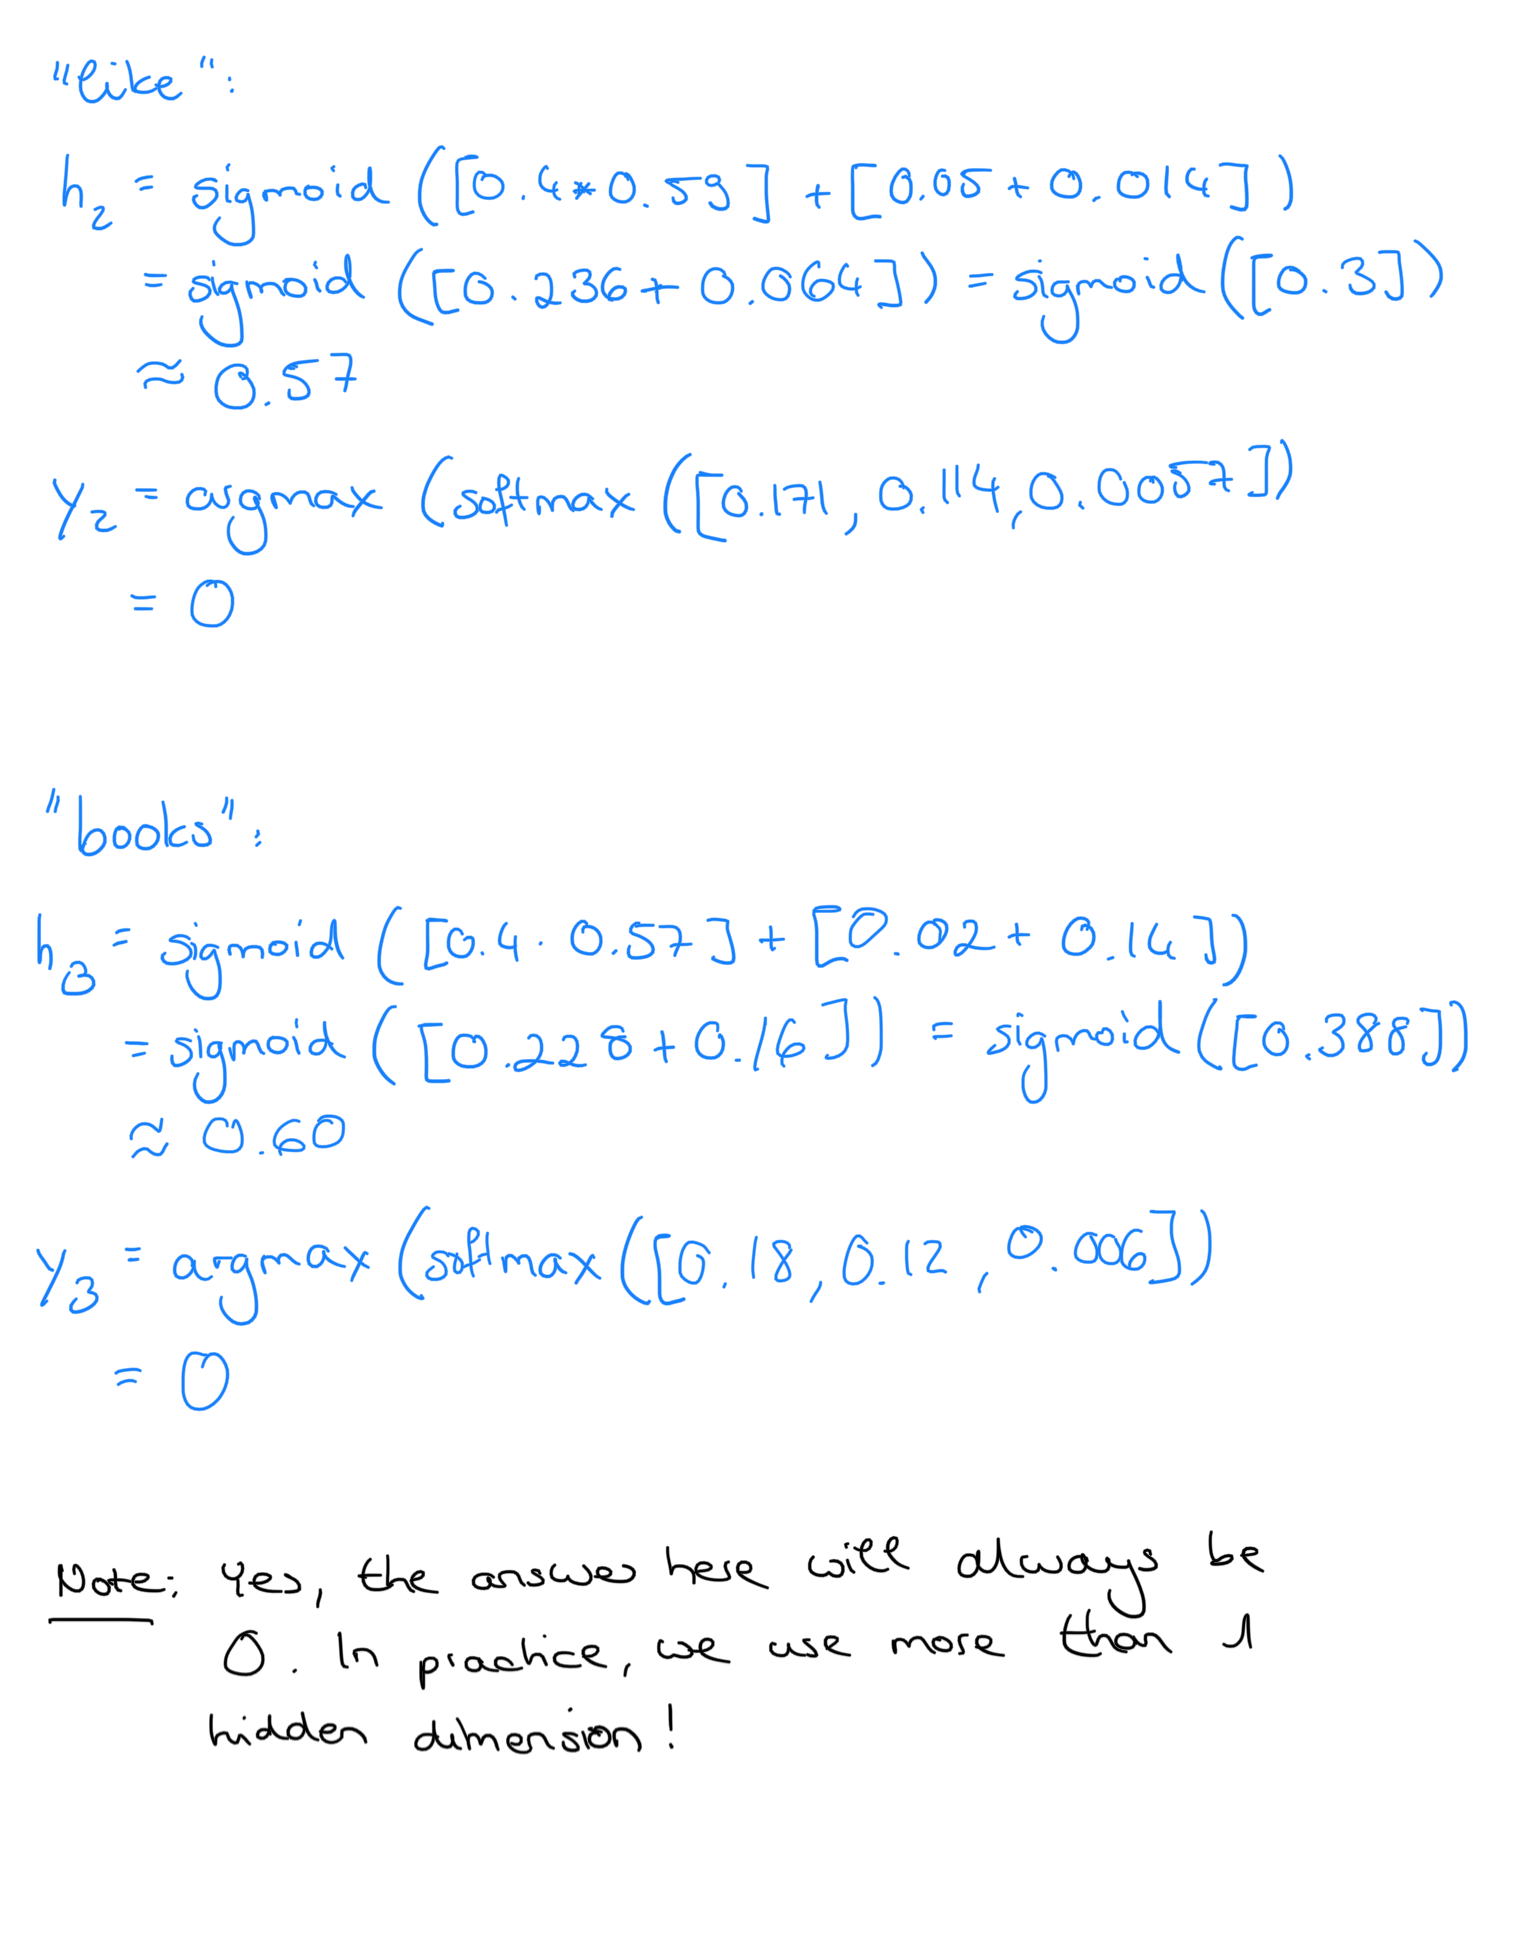 "like":
h₂ = sigmoid ([0.4*0.59] + [0.05 + 0.014])
= sigmoid ([0.236 + 0.064]) = sigmoid ([0.3])
≈ 0.57
y₂ = argmax (softmax ([0.171, 0.114, 0.0057])
= 0
"books":
h₃ = sigmoid ([0.4 · 0.57] + [0.02 + 0.14])
= sigmoid ([0.228 + 0.16]) = sigmoid ([0.388])
≈ 0.60
y₃ = argmax (softmax ([0.18, 0.12, 0.006])
= 0
Note: Yes, the answer here will always be
0. In practice, we use more than 1
hidden dimension!